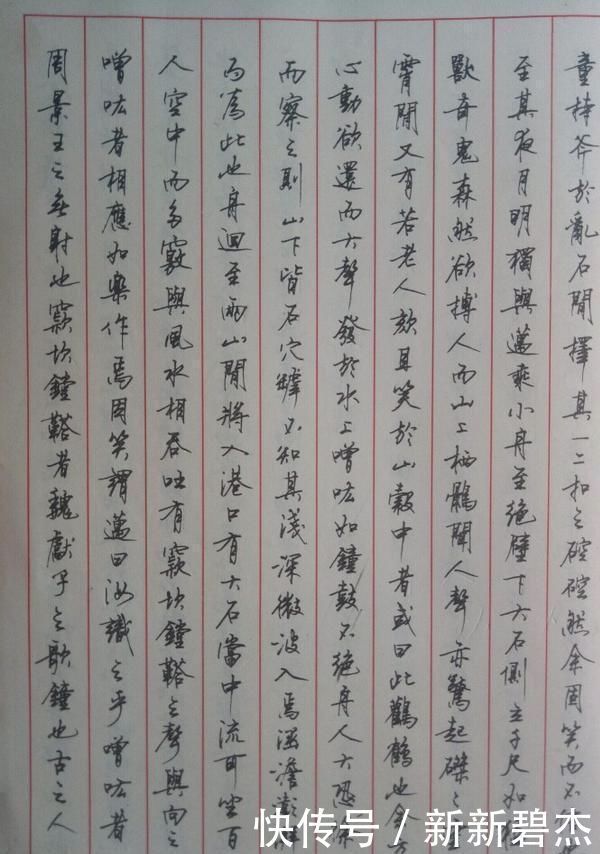 童持斧於亂石間擇其一二扣之硿硿然余固笑而不
至其夜月明獨與邁乘小舟至絕壁下大石側立千尺如
獸奇鬼森然欲搏人而山上栖鶻聞人聲亦驚起磔々
霄間又有若老人欬且笑於山穀中者或曰此鸛鶴也余
心動欲還而大聲發於水上噌吰如鐘鼓不絕舟人大恐徐
而察之則山下皆石穴罅不知其淺深微波入焉涵澹澎
而為此也舟迴至兩山間將入港口有大石當中流可坐百
人空中而多竅與風水相吞吐有窾坎鏜鞳之聲與向之
噌吰者相應如樂作焉因笑謂邁曰汝識之乎噌吰者
周景王之無射也窾坎鏜鞳者魏獻子之歌鐘也古之人
快传号 / 新新碧杰